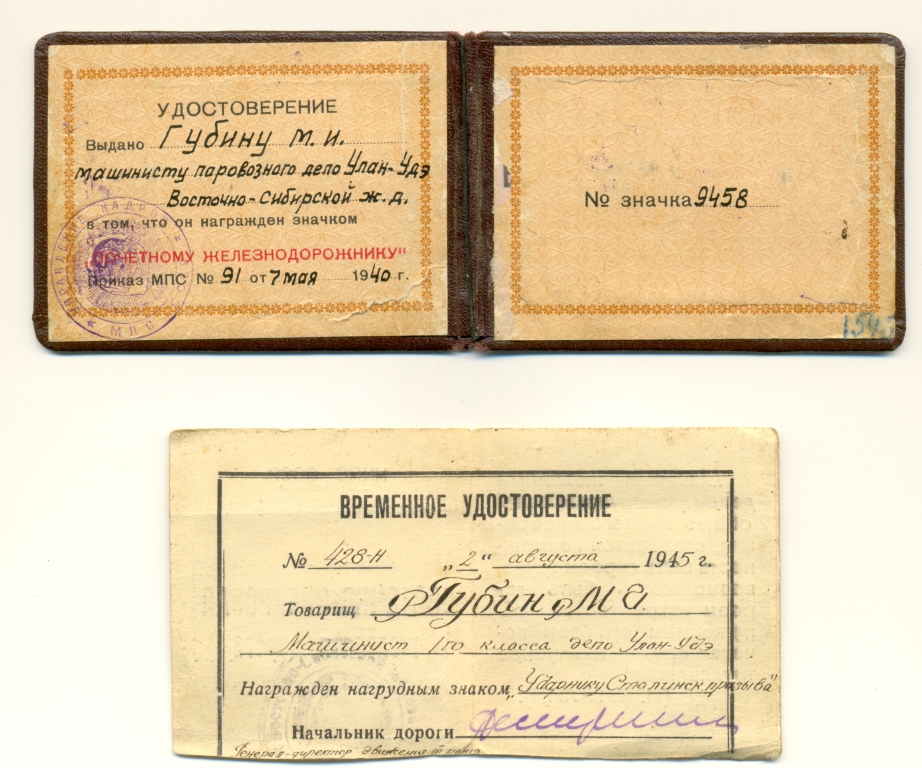 УДОСТОВЕРЕНИЕ
Выдано Губину М.И.
машинисту паровозного депо Улан-Удэ
Восточно-Сибирской ж.д.
в том, что он награжден значком
„ПОЧЕТНОМУ ЖЕЛЕЗНОДОРОЖНИКУ"
Приказ МПС № 91 от 7 мая 1940 г.
МПС
№ значка 9458
ВРЕМЕННОЕ УДОСТОВЕРЕНИЕ
№ 428-н „2" августа 1945 г.
Товарищ Губин М И.
Машинист 1го класса депо Улан-Удэ
Награжден нагрудным знаком „Ударнику Сталинск. призыва"
Начальник дороги
Генерал-директор движения III ранга